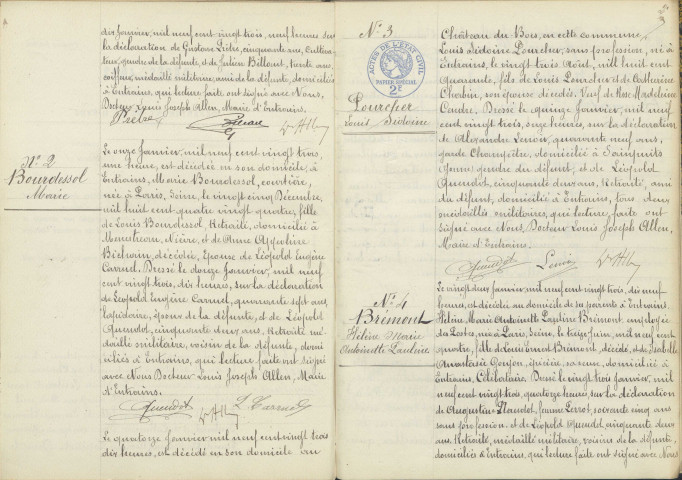 dix janvier, mil neuf cent vingt trois, neuf heures sur
la déclaration de Gustave Piètre, cinquante ans, Cultiva
teur, gendre de la défunte, et de Julien Billaut, trente ans,
coiffeur, médaillé militaire, ami de la défunte, domiciliés
à Entrains, qui lecture faite ont signé avec Nous,
Docteur Louis Joseph Allen, Maire d'Entrains.
N° 2
Bourdessol
Marie
Le onze janvier, mil neuf cent vingt trois,
une heure, est décédée en son domicile, à
Entrains, Marie Bourdessol, courtière,
née à Paris, Seine, le vingt cinq Décembre,
mil huit cent quatre vingt quatre, fille
de Louis Bourdessol, Retraité, domicilié à
Menestreau, Nièvre, et de Anne Appoline
décédée, Epouse de Léopold Eugène
Carruel. Dressé le douze Janvier, mil neuf
cent vingt trois, dix heures, sur la déclaration
de Léopold Eugène Carruel, quarante sept ans,
époux de la défunte, et de Léopold
Queudot, cinquante deux ans, Retraité mé
daillé militaire, voisin de la défunte, domi
ciliés à Entrains, qui lecture faite ont signé
avec Nous Docteur Louis Joseph Allen, Maire
d'Entrains.
Queudot
Le quatorze janvier mil neuf cent vingt trois
dix heures, est décédé en son domicile au
N° 3
ACTES DE L'ETAT CIVIL
PAPIER SPECIAL
2F
Louis Sidoine
Château du Bois, en cette commune,
Louis Sidoine, sans profession, né à
Entrains, le vingt trois Août, mil huit cent
quarante, fils de Louis et de Catherine
son épouse décédés. Veuf de Rose Madeleine
Dressé le quinze janvier, mil neuf
cent vingt trois, seize heures, sur la déclaration
de Alexandre Lenoir, quarante neuf ans,
garde Champêtre, domicilié à Sainpuits
(Yonne) gendre du défunt, et de Léopold
Queudot, cinquante deux ans, Retraité, ami
du défunt, domicilié à Entrains, tous deux
médaillés militaires, qui lecture faite ont
signé avec Nous Docteur Louis Joseph Allen,
Maire d'Entrains.
Queudot Lenoir
N° 4
Brémont
Hélène Marie
Antoinette Pauline
Le vingt deux janvier mil neuf cent vingt trois, dix neuf
heures, est décédée au domicile de sa parente à Entrains,
Hélène Marie Antoinette Pauline Brémont, employée
des Postes, née à Paris, Seine, le treize Juin, mil neuf cent
quatre, fille de Louis Ernest Brémont, décédé, et de Isabelle
Anastasie Goujon, épicière, sa veuve, domiciliée à
Entrains, Célibataire. Dressé le vingt trois janvier, mil
neuf cent vingt trois, quatorze heures, sur la déclaration
de Augustine femme soixante cinq ans
sans profession, et de Léopold Queudot, cinquante deux
ans, Retraité, médaillé militaire, voisins de la défunte,
domiciliés à Entrains, qui lecture faite ont signé avec Nous